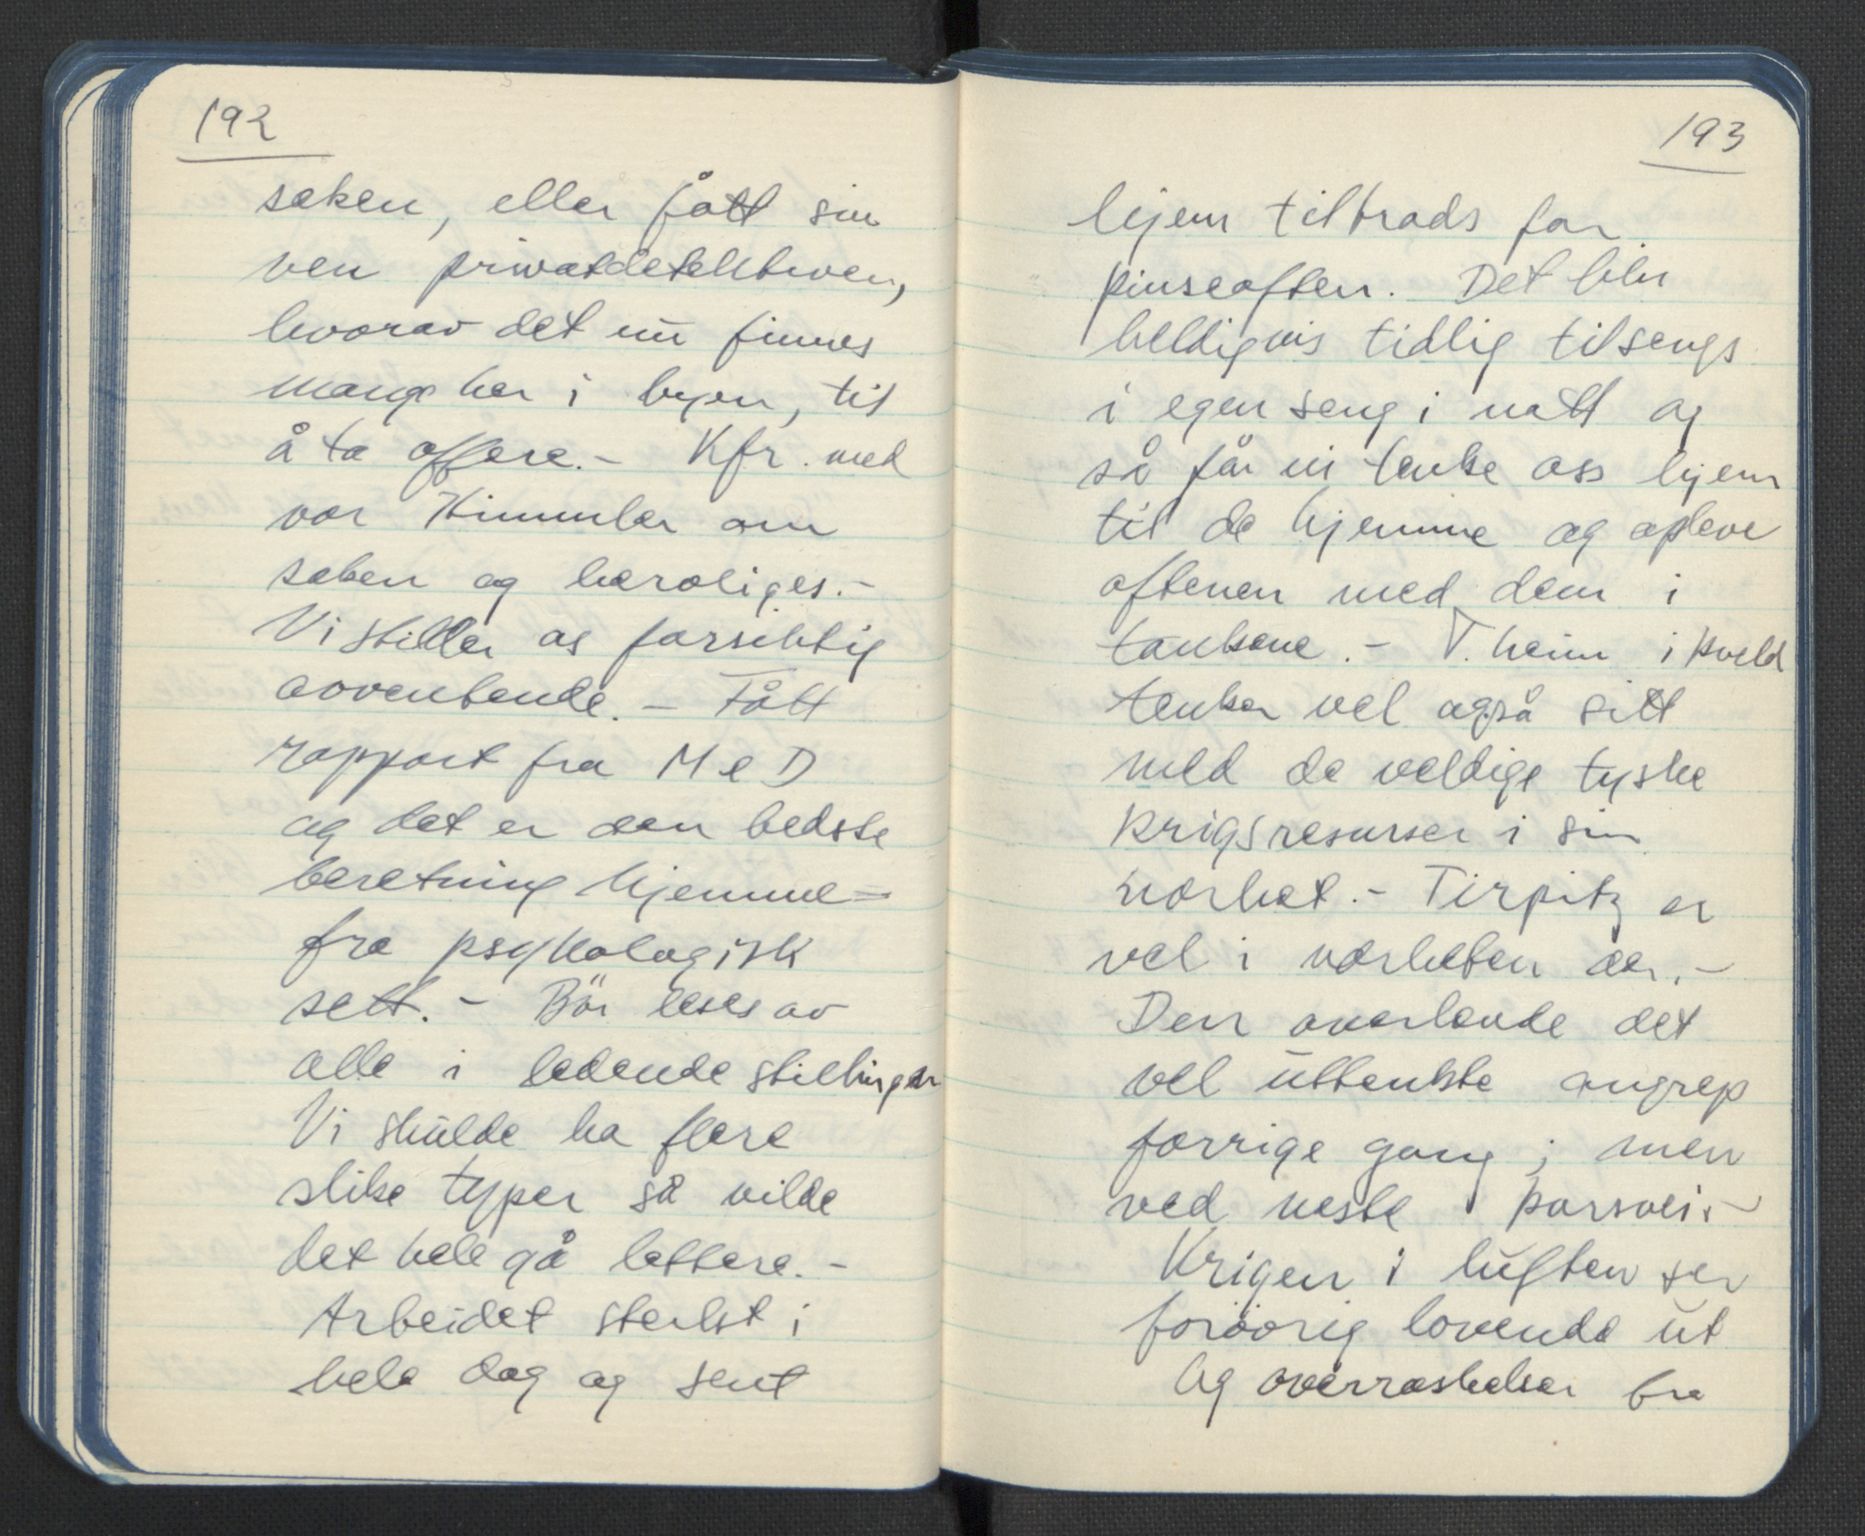 192
saken, eller fått sin
ven privatdetektiven,
hvorav det nu finnes
mange her i byen, til
å ta affære. - Kfr. med
vor Himmler om
saken og beroliges. -
Vi stiller os forsiktig
avventende. - Fått
rapport fra M e D
og det er den bedste
beretning hjemme=
fra psykologisk
sett. - Bör leses av
alle i ledende stillinger
Vi skulde ha flere
slike typer så vilde
det hele gå lettere. -
Arbeidet sterkt i
hele dag og sent
193
hjem tiltrods for
pinseaften. Det blir
heldigvis tidlig tilsengs
i egen seng i natt og
så får vi tenke oss hjem
til de hjemme og opleve
aftenen med dem i
tankene. - T.heim i kveld
tenker vel også sitt
med de veldige tyske
krigsresurser i sin
nærhet. - Tirpitz er
vel i nærheten der. -
Den overlevde det
vel uttenkte angrep
forrige gang ; men
ved neste
Krigen i luften ser
forövrig lovende ut
og overraskelser fra